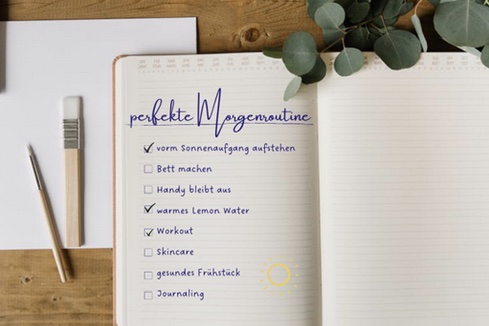 perfekte Morgenroutine
vorm Sonnenaufgang aufstehen
Bett machen
Handy bleibt aus
warmes Lemon Water
Workout
Skincare
gesundes Frühstück
Journaling